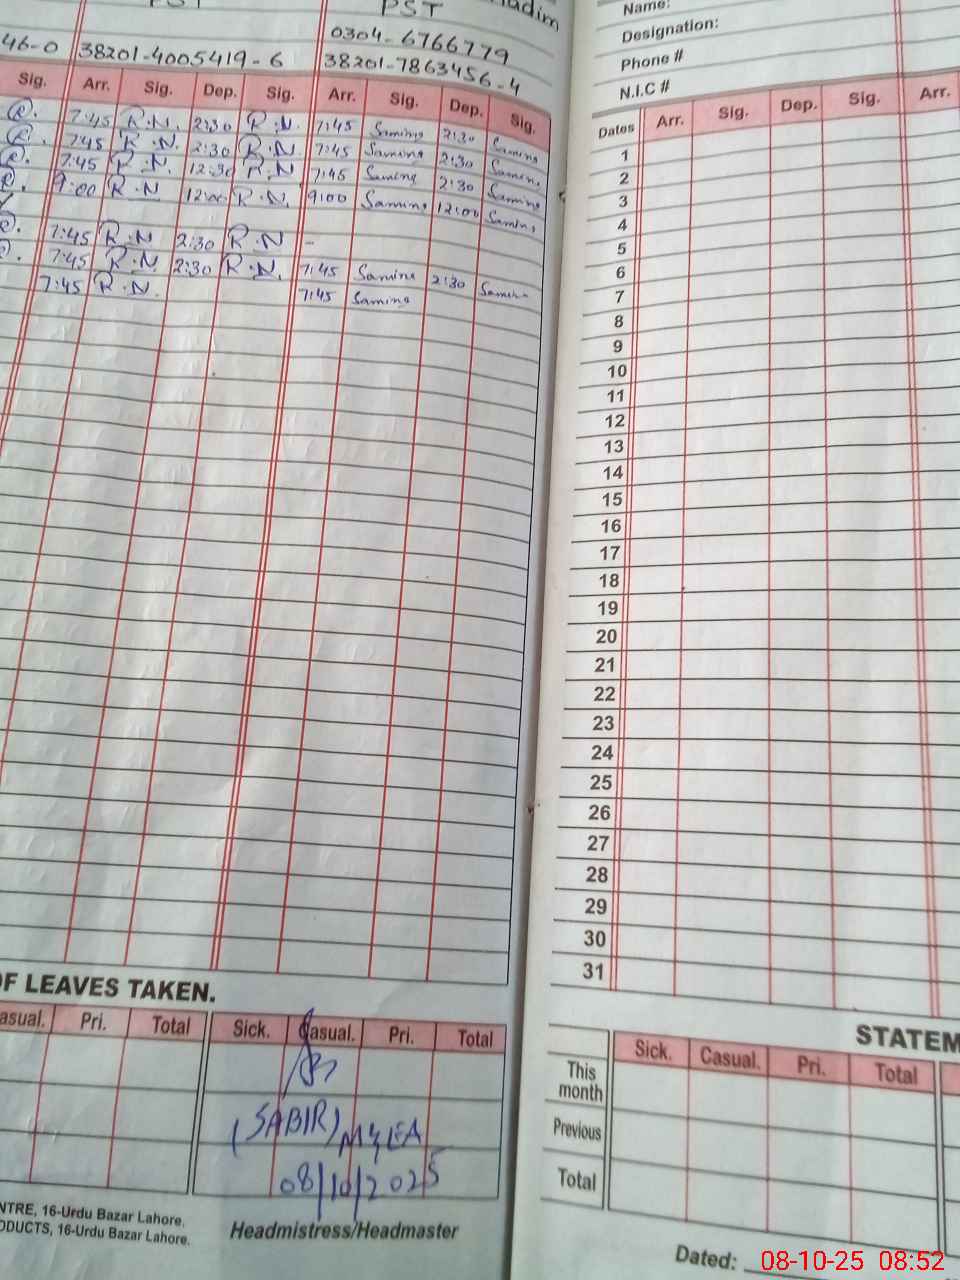 PST
hadim
0304-6766779
46-0 38201-4005419-6 38201-7863456-4
Sig. Arr. Sig. Dep. Sig. Arr. Sig. Dep. Sig.
7:45 R.N. 2:30 R.N. 7:45 Samina 2:30 Samina
7:45 R.N. 2:30 R.N. 7:45 Samina 2:30 Samina
7:45 R.N. 12:30 R.N 7:45 Samina 2:30 Samina
9:00 R.N 12:00 R.N. 9:00 Samina 12:00 Samina
7:45 R.N 2:30 R.N -
7:45 R.N 2:30 R.N. 7:45 Samina 2:30 Samina
7:45 R.N. 7:45 Samina
OF LEAVES TAKEN.
asual. Pri. Total Sick. Casual. Pri. Total
(SABIR) M&EA
08/10/2025
NTRE, 16-Urdu Bazar Lahore.
ODUCTS, 16-Urdu Bazar Lahore.
Headmistress/Headmaster
Name:
Designation:
Phone #
N.I.C #
Dates Arr. Sig. Dep. Sig. Arr.
1
2
3
4
5
6
7
8
9
10
11
12
13
14
15
16
17
18
19
20
21
22
23
24
25
26
27
28
29
30
31
STATEM
Sick. Casual. Pri. Total
This month
Previous
Total
Dated:
08-10-25 08:52